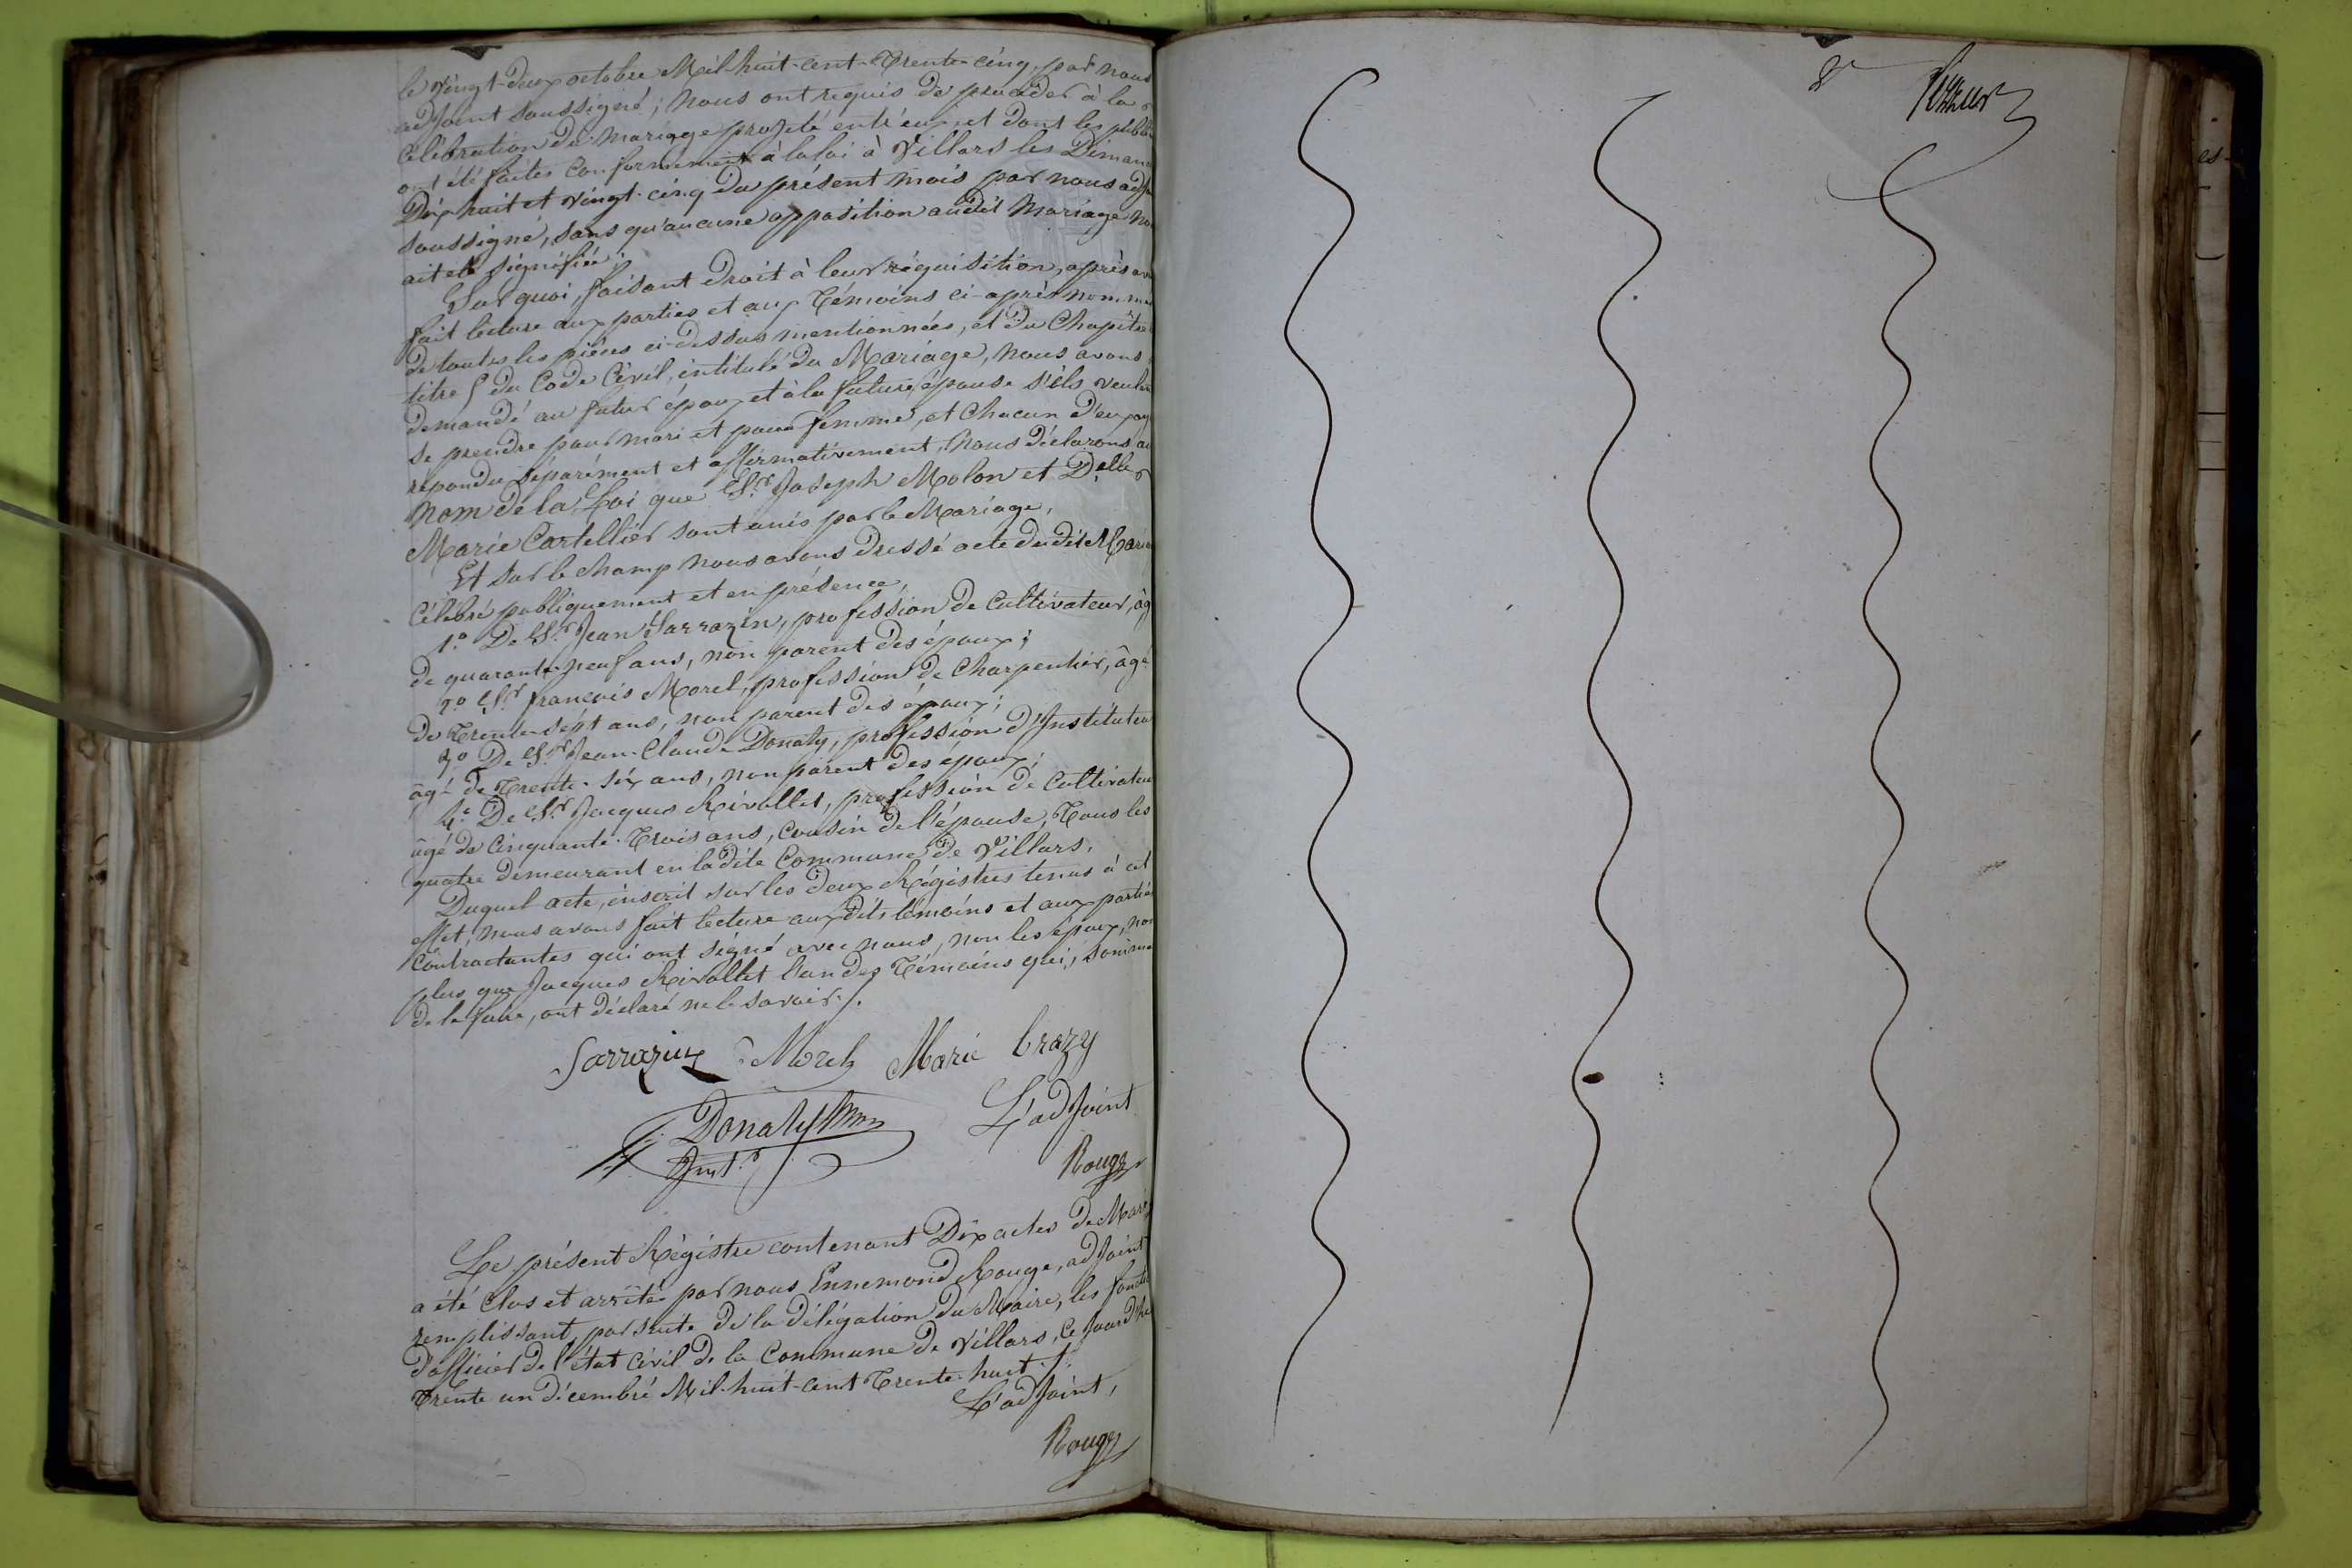 le vingt-deux octobre Mil-huit-cent-Trente-cinq, par nous
adjoint soussigné; nous ont requis de procéder à la
célébration du mariage projeté entr'eux, et dont les publi
ont été faites conformément à la loi à Villars les Diman
Dix huit et vingt-cinq du présent mois par nous adj
soussigné, sans qu'aucune opposition audit mariage no
ait été signifiée;
Sur quoi, faisant droit à leur réquisition, après av
fait lecture aux parties et aux Témoins ci-après nomm
de toutes les pièces ci-dessus mentionnées, et du Chapitre
titre 5 du Code Civil, intitulé du Mariage, nous avons
demandé au futur époux et à la future épouse s'ils veulen
se prendre pour mari et pour femme, et chacun d'eux ay
répondu séparément et affirmativement, Nous déclarons au
nom de la Loi que Sr. Joseph Molon et Delle
Marie Cartellier sont unis par le Mariage,
Et sur le champ nous avons dressé acte dudit Maria
célébré publiquement et en présence,
1.° De Sr. Jean Sarrazin, profession de cultivateur, âg
de quarante-neuf ans, non parent des époux;
2.° Sr. françois Morel, profession de Charpentier, âgé
de Trente-sept ans, non parent des époux;
3.° De Sr. Jean-Claude Donaty, profession d'Instituteu
âgé de Trente-six ans, non parent des époux;
4.° De Sr. Jacques Rivollet, profession de cultivateu
âgé de Cinquante-Trois ans, cousin de l'épouse, Tous les
quatre demeurant en ladite Commune de Villars.
Duquel acte, inscrit sur les deux Régistres tenus à cet
effet, nous avons fait lecture auxdits témoins et aux partie
Contractantes qui ont signé avec nous, non les époux, non
plus que Jacques Rivollet l'un des Témoins qui, somm
de le faire, ont déclaré ne le savoir./.
Sarrazin Morel Marie Crazy
Donaty L'adjoint
Inst.r Rouge
Le présent Régistre contenant Dix actes de Mari
a été clos et arrêté par nous Ennemond Rouge, adjoint
remplissant, par suite de la délégation du Maire, les foncti
d'officier de l'état civil de la Commune de Villars, ce jourd'hu
trente un décembre Mil-huit-cent Trente-huit./.
L'adjoint,
Rouge